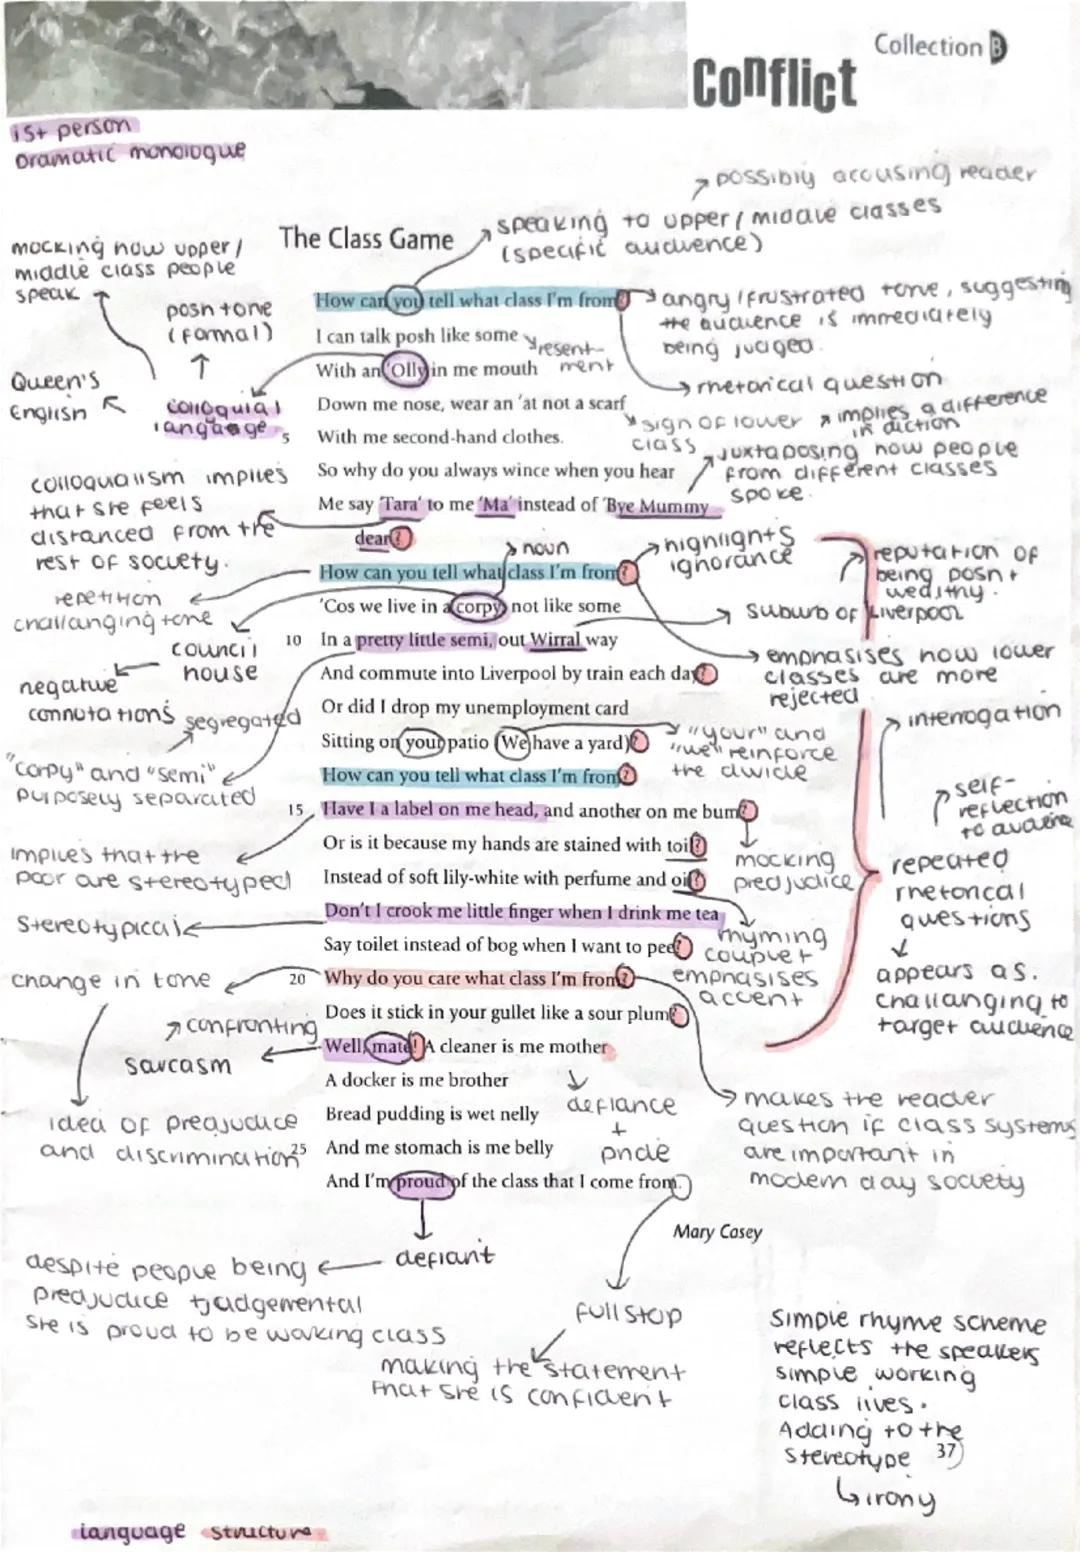 Collection B
Conflict
1st person
Dramatic monologue
possibly accusing reader
speaking to upper / middle classes
(specific audience)
The Class Game
mocking how upper /
middle class people
speak
posh tone
(formal)
Queen's
English
colloquial
language
How can you tell what class I'm from?
angry / frustrated tone, suggesting
the audience is immediately
being judged.
I can talk posh like some
resent-
ment
With an 'Olly in me mouth
rhetorical question
Down me nose, wear an 'at not a scarf
sign of lower
class
implies a difference
in diction
5
With me second-hand clothes.
juxtaposing how people
from different classes
spoke.
So why do you always wince when you hear
Me say 'Tara' to me 'Ma' instead of 'Bye Mummy
dear'?
colloquialism implies
that she feels
distanced from the
rest of society.
noun
highlights
ignorance
reputation of
being posh +
wealthy.
How can you tell what class I'm from?
repetition
challanging tone
'Cos we live in a corpy, not like some
suburb of Liverpool
council
house
negative
connotations
10 In a pretty little semi, out Wirral way
emphasises how lower
classes are more
rejected
And commute into Liverpool by train each day?
segregated
Or did I drop my unemployment card
interrogation
Sitting on your patio (We have a yard)?
"your" and
"we" reinforce
the divide
"corpy" and "semi"
purposely separated
How can you tell what class I'm from?
self-
reflection
to audience
15 Have I a label on me head, and another on me bum?
implies that the
poor are stereotyped
Or is it because my hands are stained with toil?
mocking
predjudice
repeated
rhetorical
questions
Instead of soft lily-white with perfume and oil?
Don't I crook me little finger when I drink me tea
stereotypical
rhyming
couplet
emphasises
accent
Say toilet instead of bog when I want to pee?
appears as.
challanging to
target audience
20 Why do you care what class I'm from?
change in tone
Does it stick in your gullet like a sour plum?
confronting
sarcasm
Well, mate! A cleaner is me mother
A docker is me brother
defiance
+
pride
makes the reader
question if class systems
are important in
modern day society
Bread pudding is wet nelly
idea of preajudice
and discrimination
25 And me stomach is me belly
And I'm proud of the class that I come from.
Mary Casey
defiant
despite people being
predjudice + judgemental
she is proud to be working class
full stop
making the statement
that she is confident
Simple rhyme scheme
reflects the speakers
simple working
class lives.
Adding to the
stereotype
37
irony
language structure